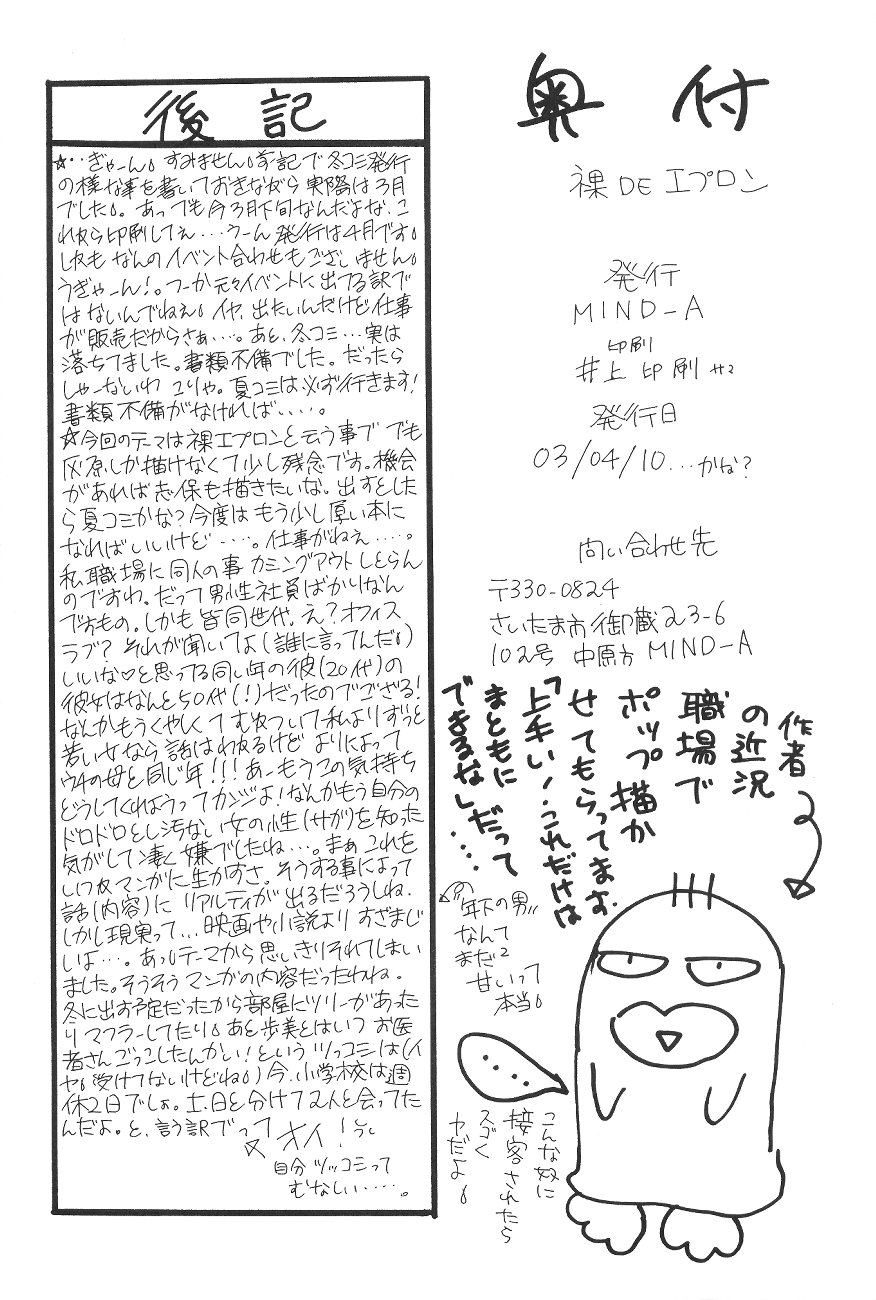 後記
☆‥ぎゃーん。すみません。前記で冬コミ発行
の様な事を書いておきながら実際は3月
でした。あっでも今3月下旬なんだよな、こ
れから印刷してぇ…うーん発行は4月です。
しかもなんのイベント合わせもございません。
うぎゃーん!。つーか元々イベントに出てる訳で
はないんでねぇ。イヤ、出たいんだけど仕事
が販売だからさぁ…。あと、冬コミ…実は
落ちてました。書類不備でした。だったら
しゃーないわ こりゃ。夏コミは必ず行きます!
書類不備がなければ‥‥。
☆今回のテーマは裸エプロンと云う事で でも
灰原しか描けなくて少し残念です。機会
があれば志保も描きたいな。出すとした
ら夏コミかな?今度はもう少し厚い本に
なればいいけど‥‥。仕事がねぇ…。
私、職場に同人の事 カミングアウトしとらん
のですわ。だって男性社員ばかりなん
ですもの。しかも皆同世代。え?オフィス
ラブ?それが聞いてよ(誰に言ってんだ。)
いいな♡と思ってる同い年の彼(20代)の
彼女はなんと50代(!)だったのでござる!
なんかもうくやしくてむかついて私よりずっと
若い女なら話はわかるけど よりによって
ウチの母と同じ年!!!あーもうこの気持ち
どうしてくれようってカンジよ!なんかもう自分の
ドロドロとし汚ない女の性(サガ)を知った
気がして凄く嫌でしたね…。まぁこれを
いつかマンガに生かすさ。そうする事によって
話(内容)に リアルティが出るだろうしね。
しかし現実って…映画や小説よりすざまじ
いよ…。あっ!テーマから思いきりそれてしまい
ました。そうそうマンガの内容だったわね。
冬に出す予定だったから部屋にツリーがあった
りマフラーしてたり。あと歩美とはいつ お医
者さんごっこしたんかい!というツッコミは(イ
ヤ。受けてないけどね。)今、小学校は週
休2日でしょ。土、日と分けて2人と会ってた
んだよ。と、言う訳でって オイ!
自分ツッコミって
むなしい‥‥。
奥付
裸DEエプロン
発行
MIND-A
印刷
井上印刷サマ
発行日
03/04/10…かな?
問い合わせ先
〒330-0824
さいたま市御蔵23-6
102号 中原方 MIND-A
作者
の近況
職場で
ポップ描か
せてもらってます。
「上手い!これだけは
まともに
できるな」だって
・・・
年下の男
なんて
まだ2
甘いって
本当。
‥‥
こんな奴に
接客されたら
スゴく
ヤだよ。